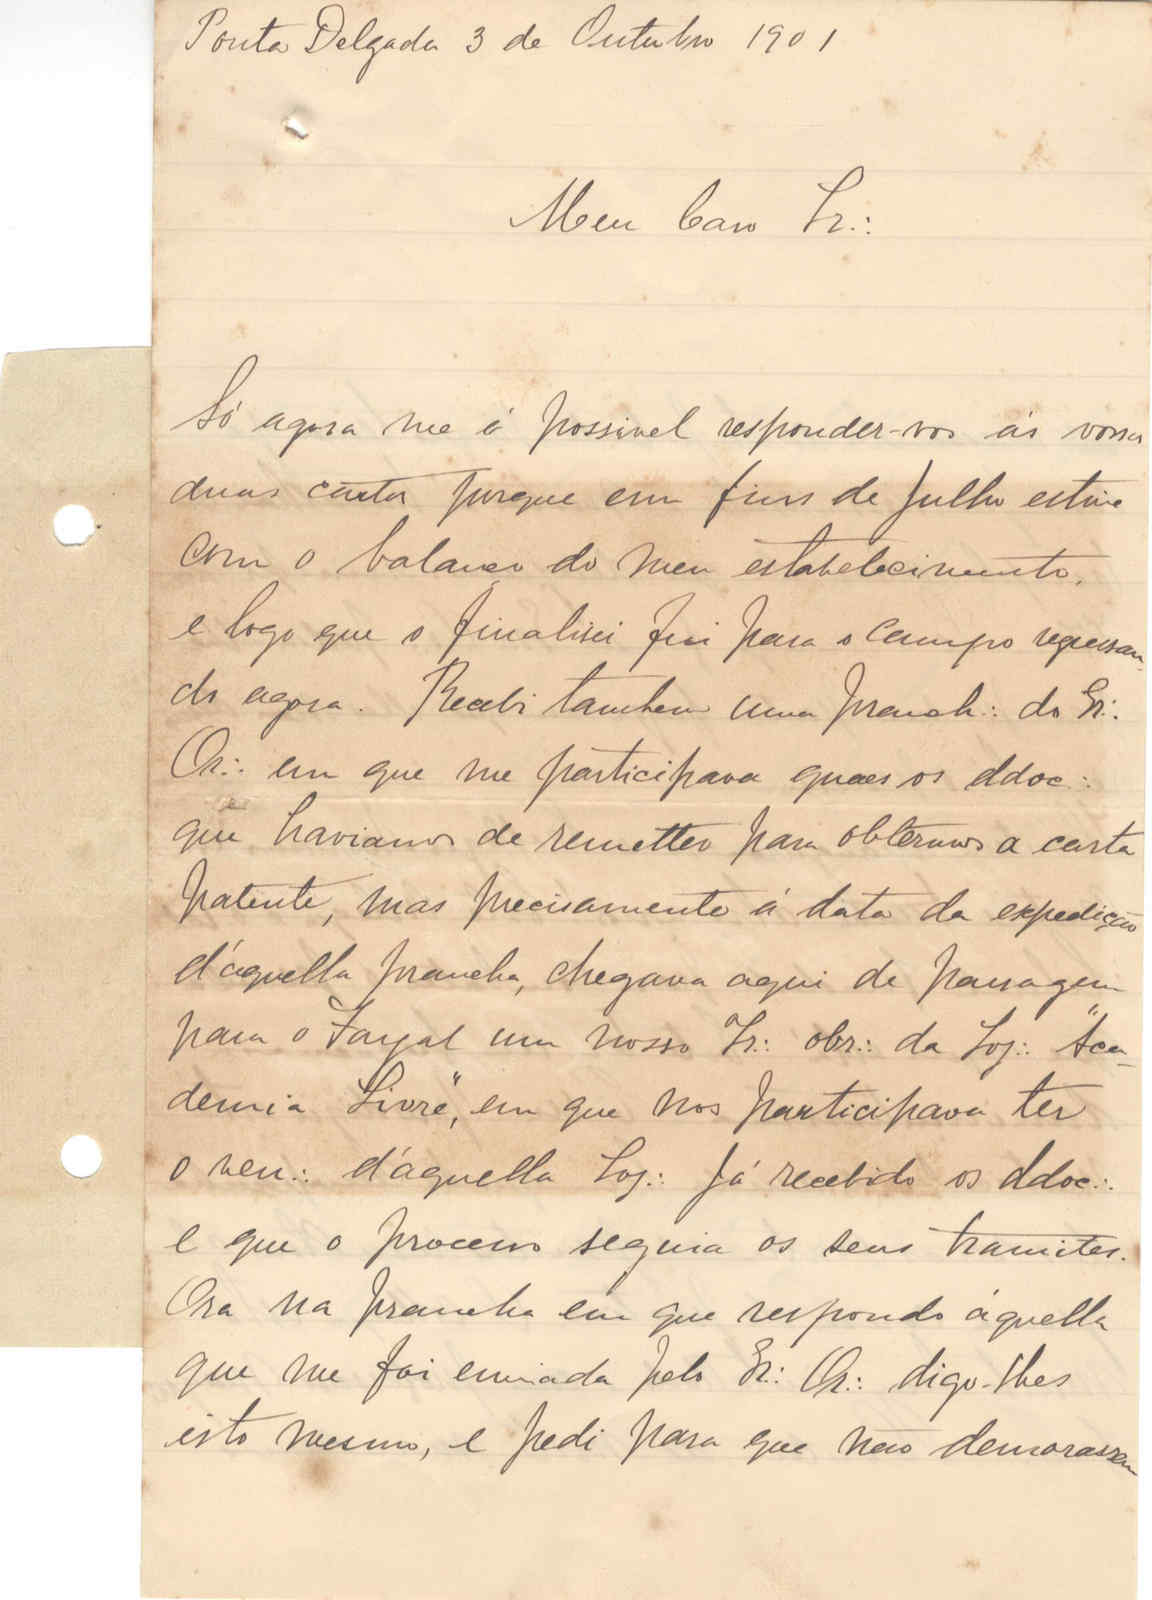 Ponta Delgada 3 de Outubro 1901
Meu Caro Ir.:
Só agora me é possivel responder-vos ás vossas
duas cartas porque em fins de Julho estive
com o balanço do meu estabelecimento,
e logo que o finalisei fui para o campo regressan-
do agora. Recebi tambem uma pranch.: do Gr.:
Or.: em que me participava quaes os ddoc.:
que haviamos de remetter para obtermos a carta
patente, mas precisamente á data da expedição
d'aquella prancha, chegava aqui de passagem
para o Fayal um nosso Ir.: obr.: da Loj.: "Aca-
demia Livre", em que nos participava ter
o ven.: d'aquella Loj.: já recebido os ddoc.:
e que o processo seguia os seus tramites.
Ora na prancha em que respondo áquella
que me foi enviada pelo Gr.: Or.: digo-lhes
isto mesmo, e pedi para que não demorassem